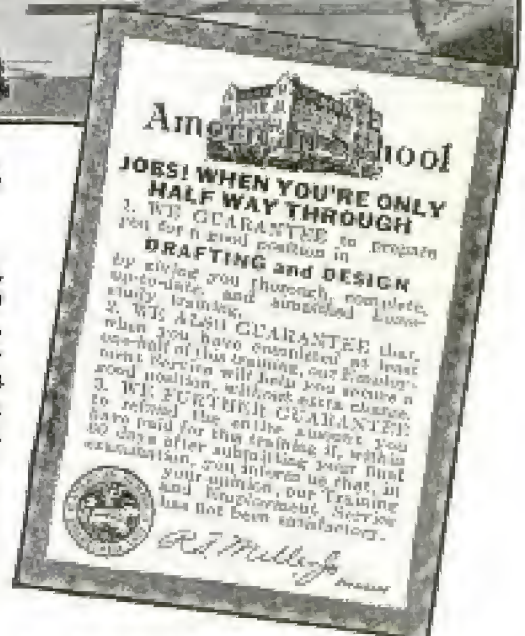 American School
JOBS! WHEN YOU'RE ONLY
HALF WAY THROUGH
1. WE GUARANTEE to prepare
you for a good position in
DRAFTING and DESIGN
by giving you thorough, complete,
up-to-date, and home-
study training.
2. WE ALSO GUARANTEE that,
when you have completed at least
one-half of this training, our Employ-
ment Service will help you secure a
good position, without extra charge.
3. WE FURTHER GUARANTEE
to refund the entire amount you
have paid for this training if, within
60 days after submitting your final
examination, you inform us that, in
your opinion, our Training
and Employment Service
has not been satisfactory.